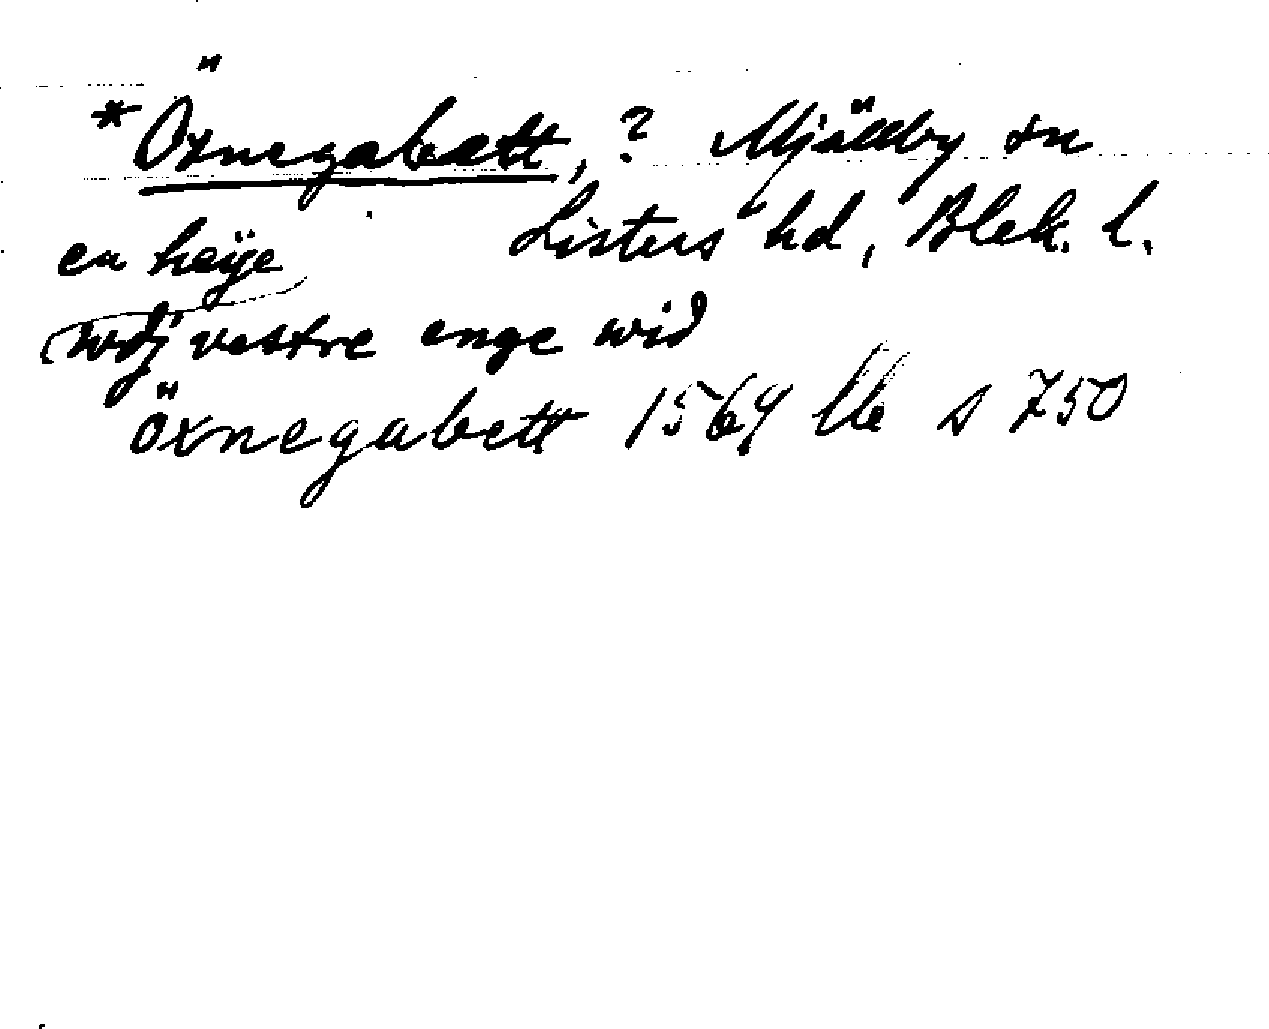 *Öxnegabett, ? Mjällby sn
Listers hd, Blek. l.
en høÿe
wdj vestre enge wid
öxnegabett 1569 llb s 750